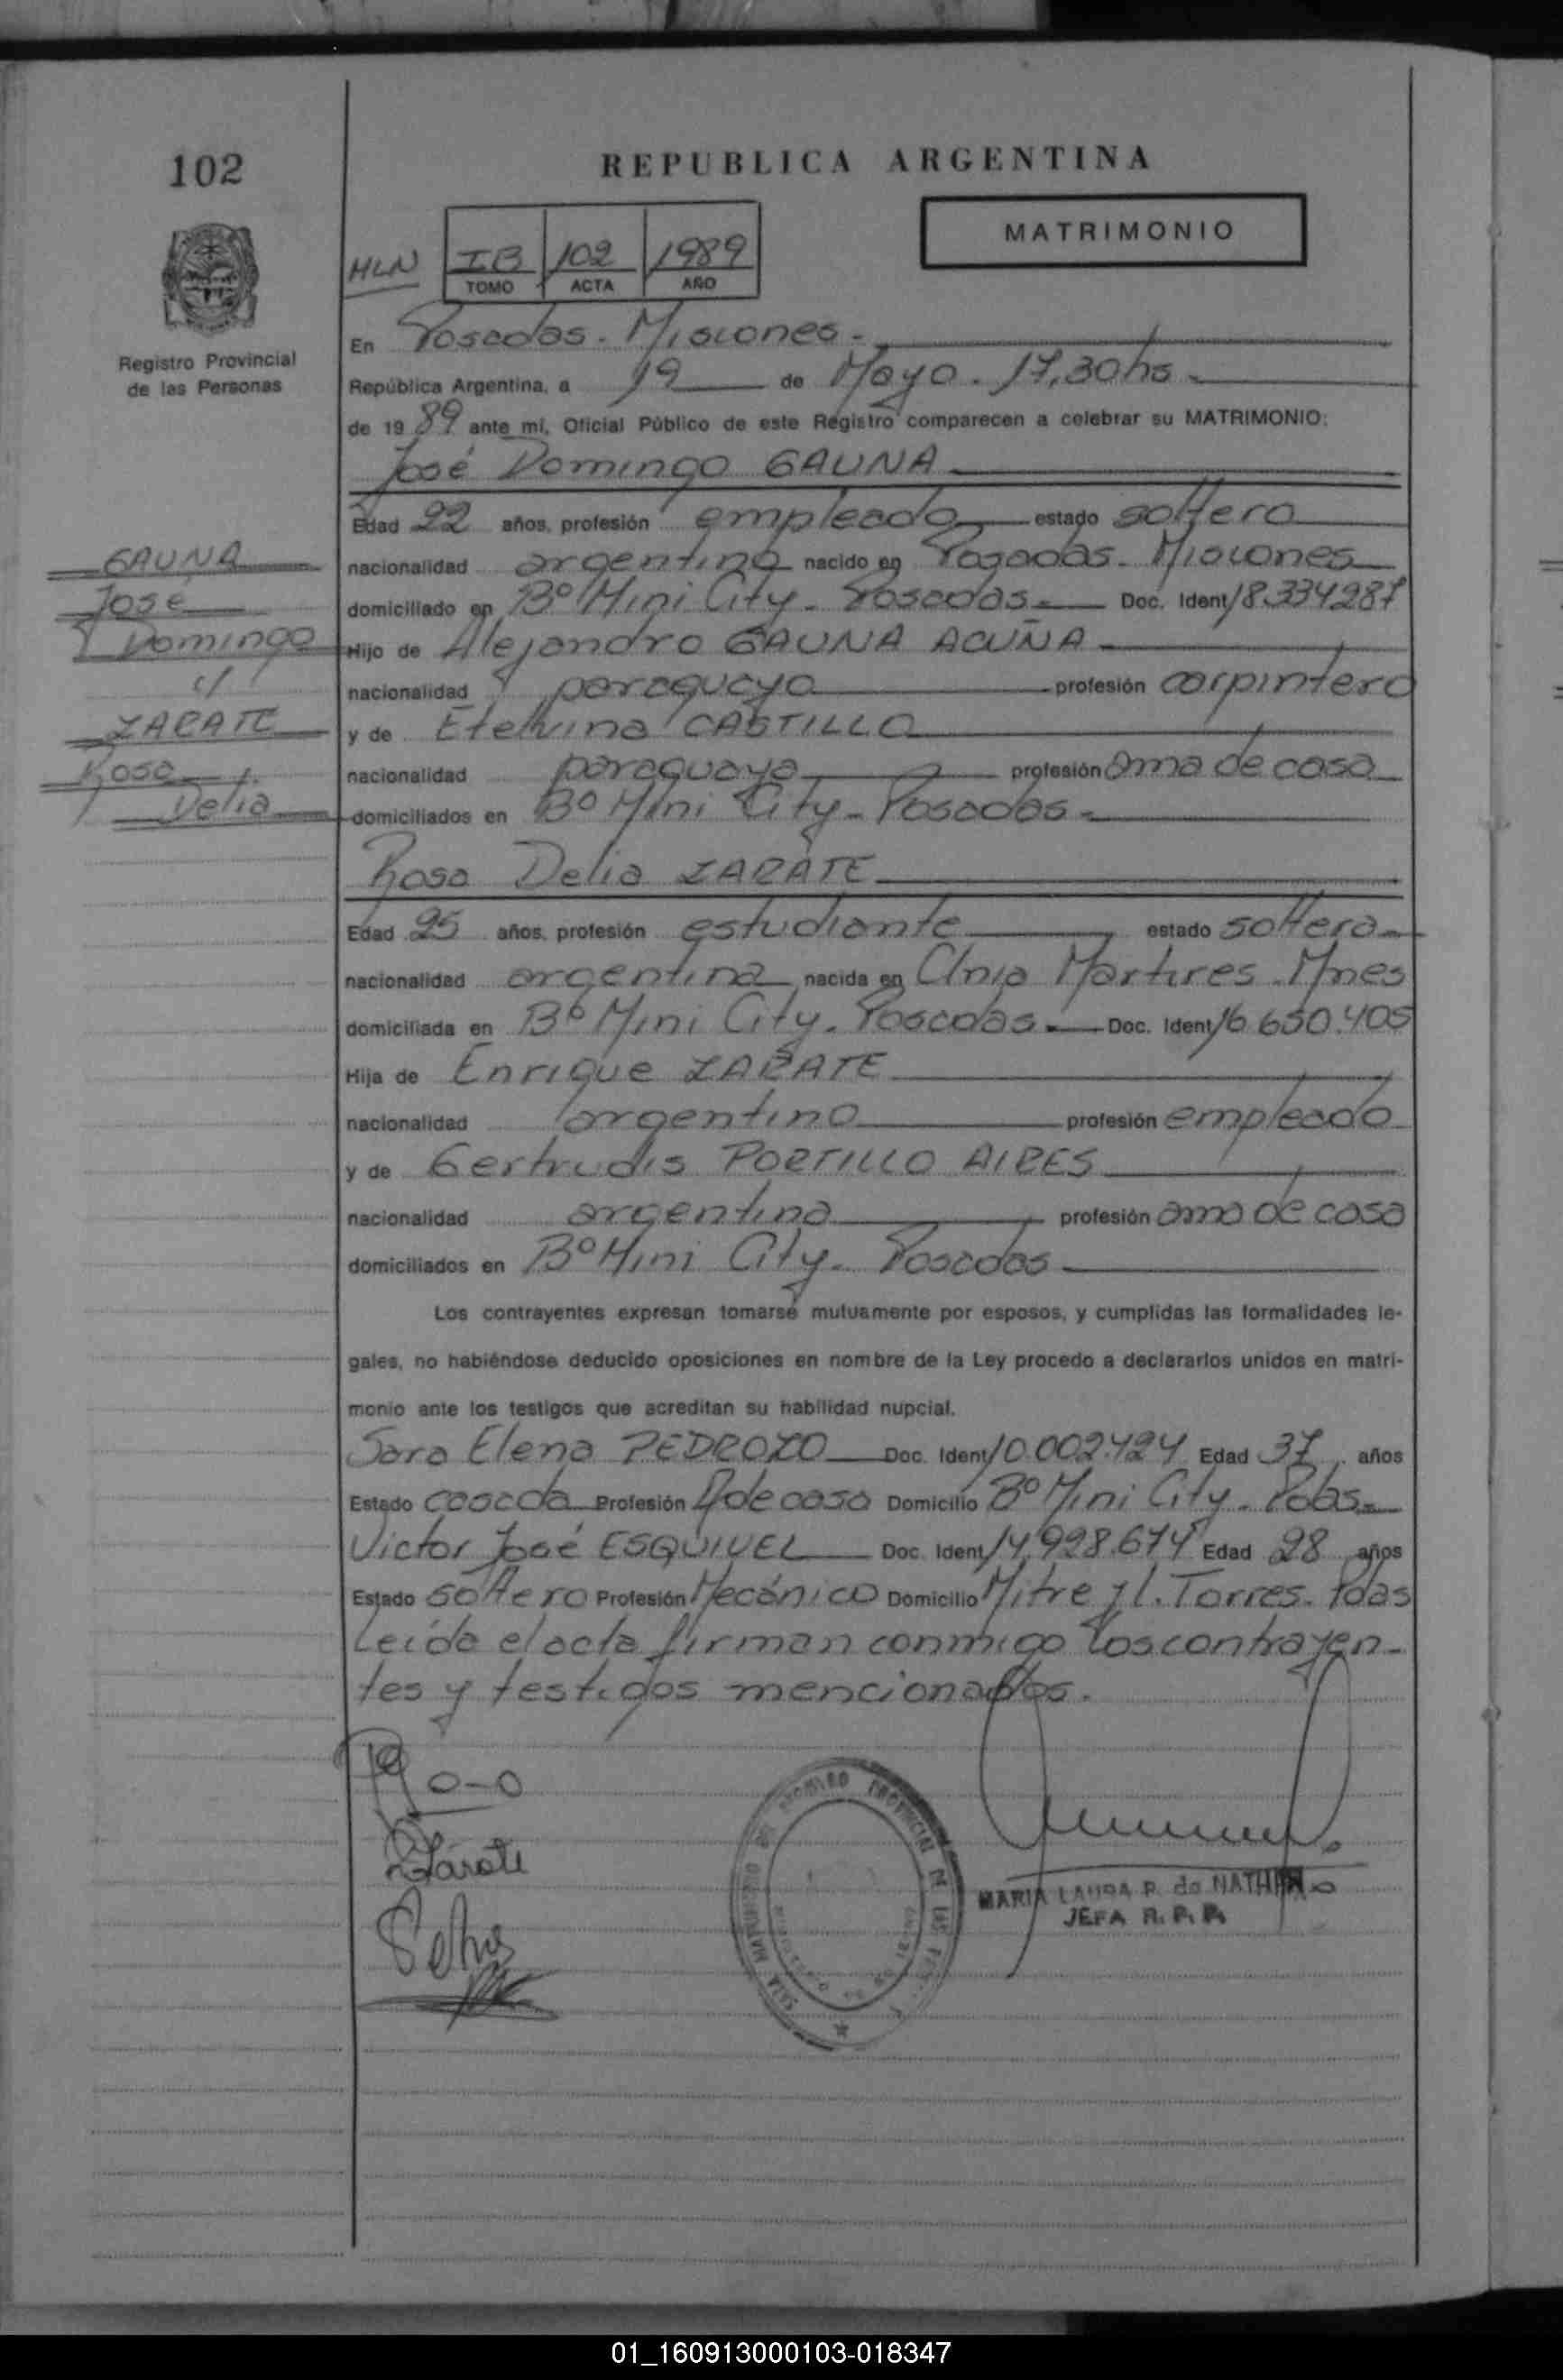 102
REPUBLICA ARGENTINA
MATRIMONIO
HLN
IB 102 1989
TOMO ACTA AÑO
Registro Provincial
de las Personas
En Posadas. Misiones.
República Argentina, a 19 de Mayo. 17,30hs.
de 1989 ante mí, Oficial Público de este Registro comparecen a celebrar su MATRIMONIO:
José Domingo GAUNA
Edad 22 años, profesión empleado estado soltero
nacionalidad argentina nacido en Posadas. Misiones
domiciliado en Bº Mini City. Posadas. Doc. Ident 18.334287
Hijo de Alejandro GAUNA ACUÑA
nacionalidad paraguaya profesión carpintero
y de Etelvina CASTILLO
nacionalidad paraguaya profesión ama de casa
domiciliados en Bº Mini City. Posadas.
GAUNA
José
Domingo
c/
ZARATE
Rosa
Delia
Rosa Delia ZARATE
Edad 25 años, profesión estudiante estado soltera
nacionalidad argentina nacida en Clnia Martires. Mnes
domiciliada en Bº Mini City. Posadas. Doc. Ident 16.650.405
Hija de Enrique ZARATE
nacionalidad argentino profesión empleado
y de Gertrudis PORTILLO AIRES
nacionalidad argentina profesión ama de casa
domiciliados en Bº Mini City. Posadas
Los contrayentes expresan tomarse mutuamente por esposos, y cumplidas las formalidades le-
gales, no habiéndose deducido oposiciones en nombre de la Ley procedo a declararlos unidos en matri-
monio ante los testigos que acreditan su habilidad nupcial.
Sara Elena PEDROZO Doc. Ident 10.002.424 Edad 37 años
Estado casada Profesión A de casa Domicilio Bº Mini City. Pdas.
Victor José ESQUIVEL Doc. Ident 14.928.674 Edad 28 años
Estado soltero Profesión Mecánico Domicilio Mitre y l. Torres. Pdas
Leída el acta firman conmigo los contrayen-
tes y testigos mencionados.
Zárate
MARIA LAURA P. de NATHAN
JEFA R. P. P.
REGISTRO PROVINCIAL DE LAS
01_160913000103-018347